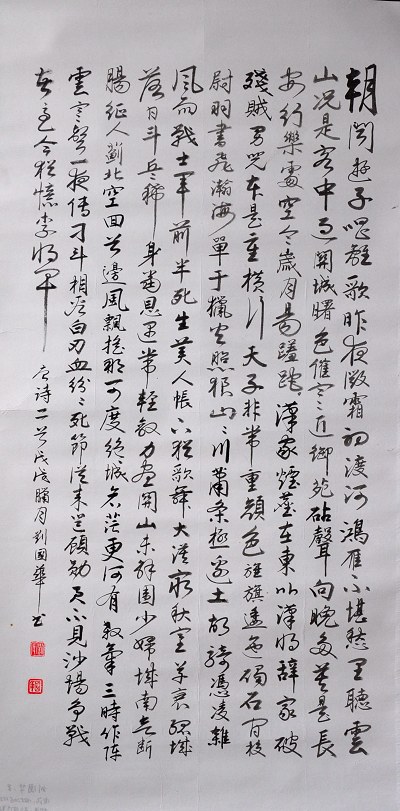 朝聞遊子唱離歌昨夜微霜初渡河鴻雁不堪愁里聽雲
山況是客中過關城曙色催寒近御苑砧聲向晚多莫是長
安行樂處空令歲月易蹉跎漢家煙塵在東北漢將辭家破
殘賊男兒本是重橫行天子非常重顏色旌旗逶迤碣石間校
尉羽書飛瀚海單于獵火照狼山々川蕭條極邊土胡騎憑凌雜
風雨戰士軍前半死生美人帳下猶歌舞大漠窮秋塞草衰孤城
落日斗兵稀身當恩遇常輕敵力盡關山未解圍少婦城南欲斷
腸征人薊北空回首邊風飄搖那可度絕域蒼茫更何有殺氣三時作陣
雲寒聲一夜傳刁斗相看白刃血紛々死節從來豈顧勛君不見沙場爭戰
苦至今猶憶李將軍
唐詩二首戊戌臘月劉國華書